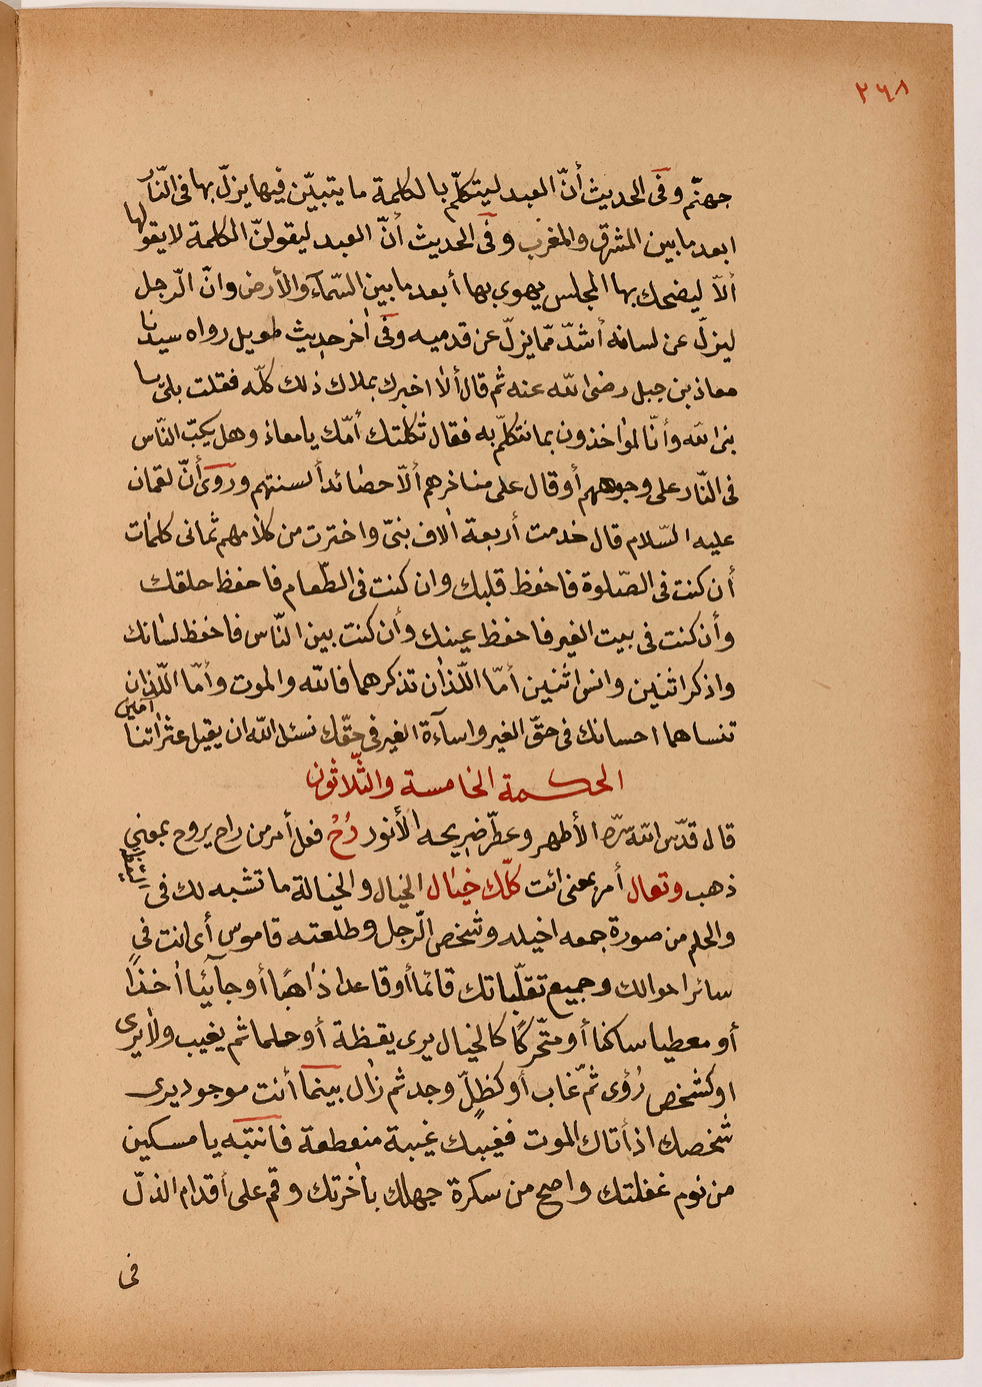 ٢٦٨
جهنّم وفى الحديث أنّ العبد ليتكلّم بالكلمة ما يتبيّن فيها يزلّ بها فى النّار
ابعد ما بين المشرق والمغرب وفى الحديث أنّ العبد ليقولنّ الكلمة لا يقولها
ألاّ ليضحك بها المجلس يهوى بها أبعد ما بين السّمآء والأرض وانّ الرّجل
ليزلّ عن لسانه أشدّ ممّا يزلّ عن قدميه وفى اٰخر حديث طويل رواه سيدنا
معاذ بن جبل رضى الله عنه ثم قال ألاٰ اخبرك بملاك ذلك كلّه فقلت بلى يا
نبى الله وأنّا لموٰاخذون بما نتكلّم به فقال ثكلتك أمّك يا معاذ وهل يكبّ النّاس
فى النّار على وجوههم أو قال على مناخرهم ألاّ حصائد ألسنتهم وروى أنّ لقمان
عليه السّلام قال خدمت أربعة اٰلاف نبىّ واخترت من كلاٰمهم ثمانى كلمٰات
أن كنت فى الصّلوة فاحفظ قلبك وان كنت فى الطّعام فاحفظ حلقك
وأن كنت فى بيت الغير فاحفظ عينك وأن كنت بين النّاس فاحفظ لسٰانك
واذكر اثنين وانس اثنين أمّا اللّذان تذكرهما فالله والموت وأمّا اللّذان
تنساهما احسانك فى حقّ الغير واسآءة الغير فى حقّك نسئل الله ان يقيل عثراتنا اٰمين
الحكمة الخامسة والثّلاثون
قال قدّس الله سرّه الأطهر وعطّر ضريحه الأنور رُحْ فعل أمر من راح يروح بمعنى
ذهب وتعال أمر بمعنى ائت كلّك خيٰال الخيال والخيالة ما تشبه لك فى اليقظة
والحلم من صورة جمعه اخيله وشخص الرّجل وطلعته قاموس أى انت فى
سائر احوالك وجميع تقلّباتك قائما أو قاعدا ذٰاهبًا أو جآئيا اٰخذًا
أو معطيا ساكنا أو متّحركًا كالخيال يرى يقظة أو حلما ثم يغيب ولاٰ يرى
او كشخص رُؤى ثمّ غاب أو كظلٍّ وجد ثم زٰال بينما أنت موجود يرى
شخصك اذ أتاك الموت فغيبك غيبة منقطعة فانتبه يا مسكين
من نوم غفلتك واصح من سكرة جهلك باٰخرتك وقم على أقدام الذلّ
فى